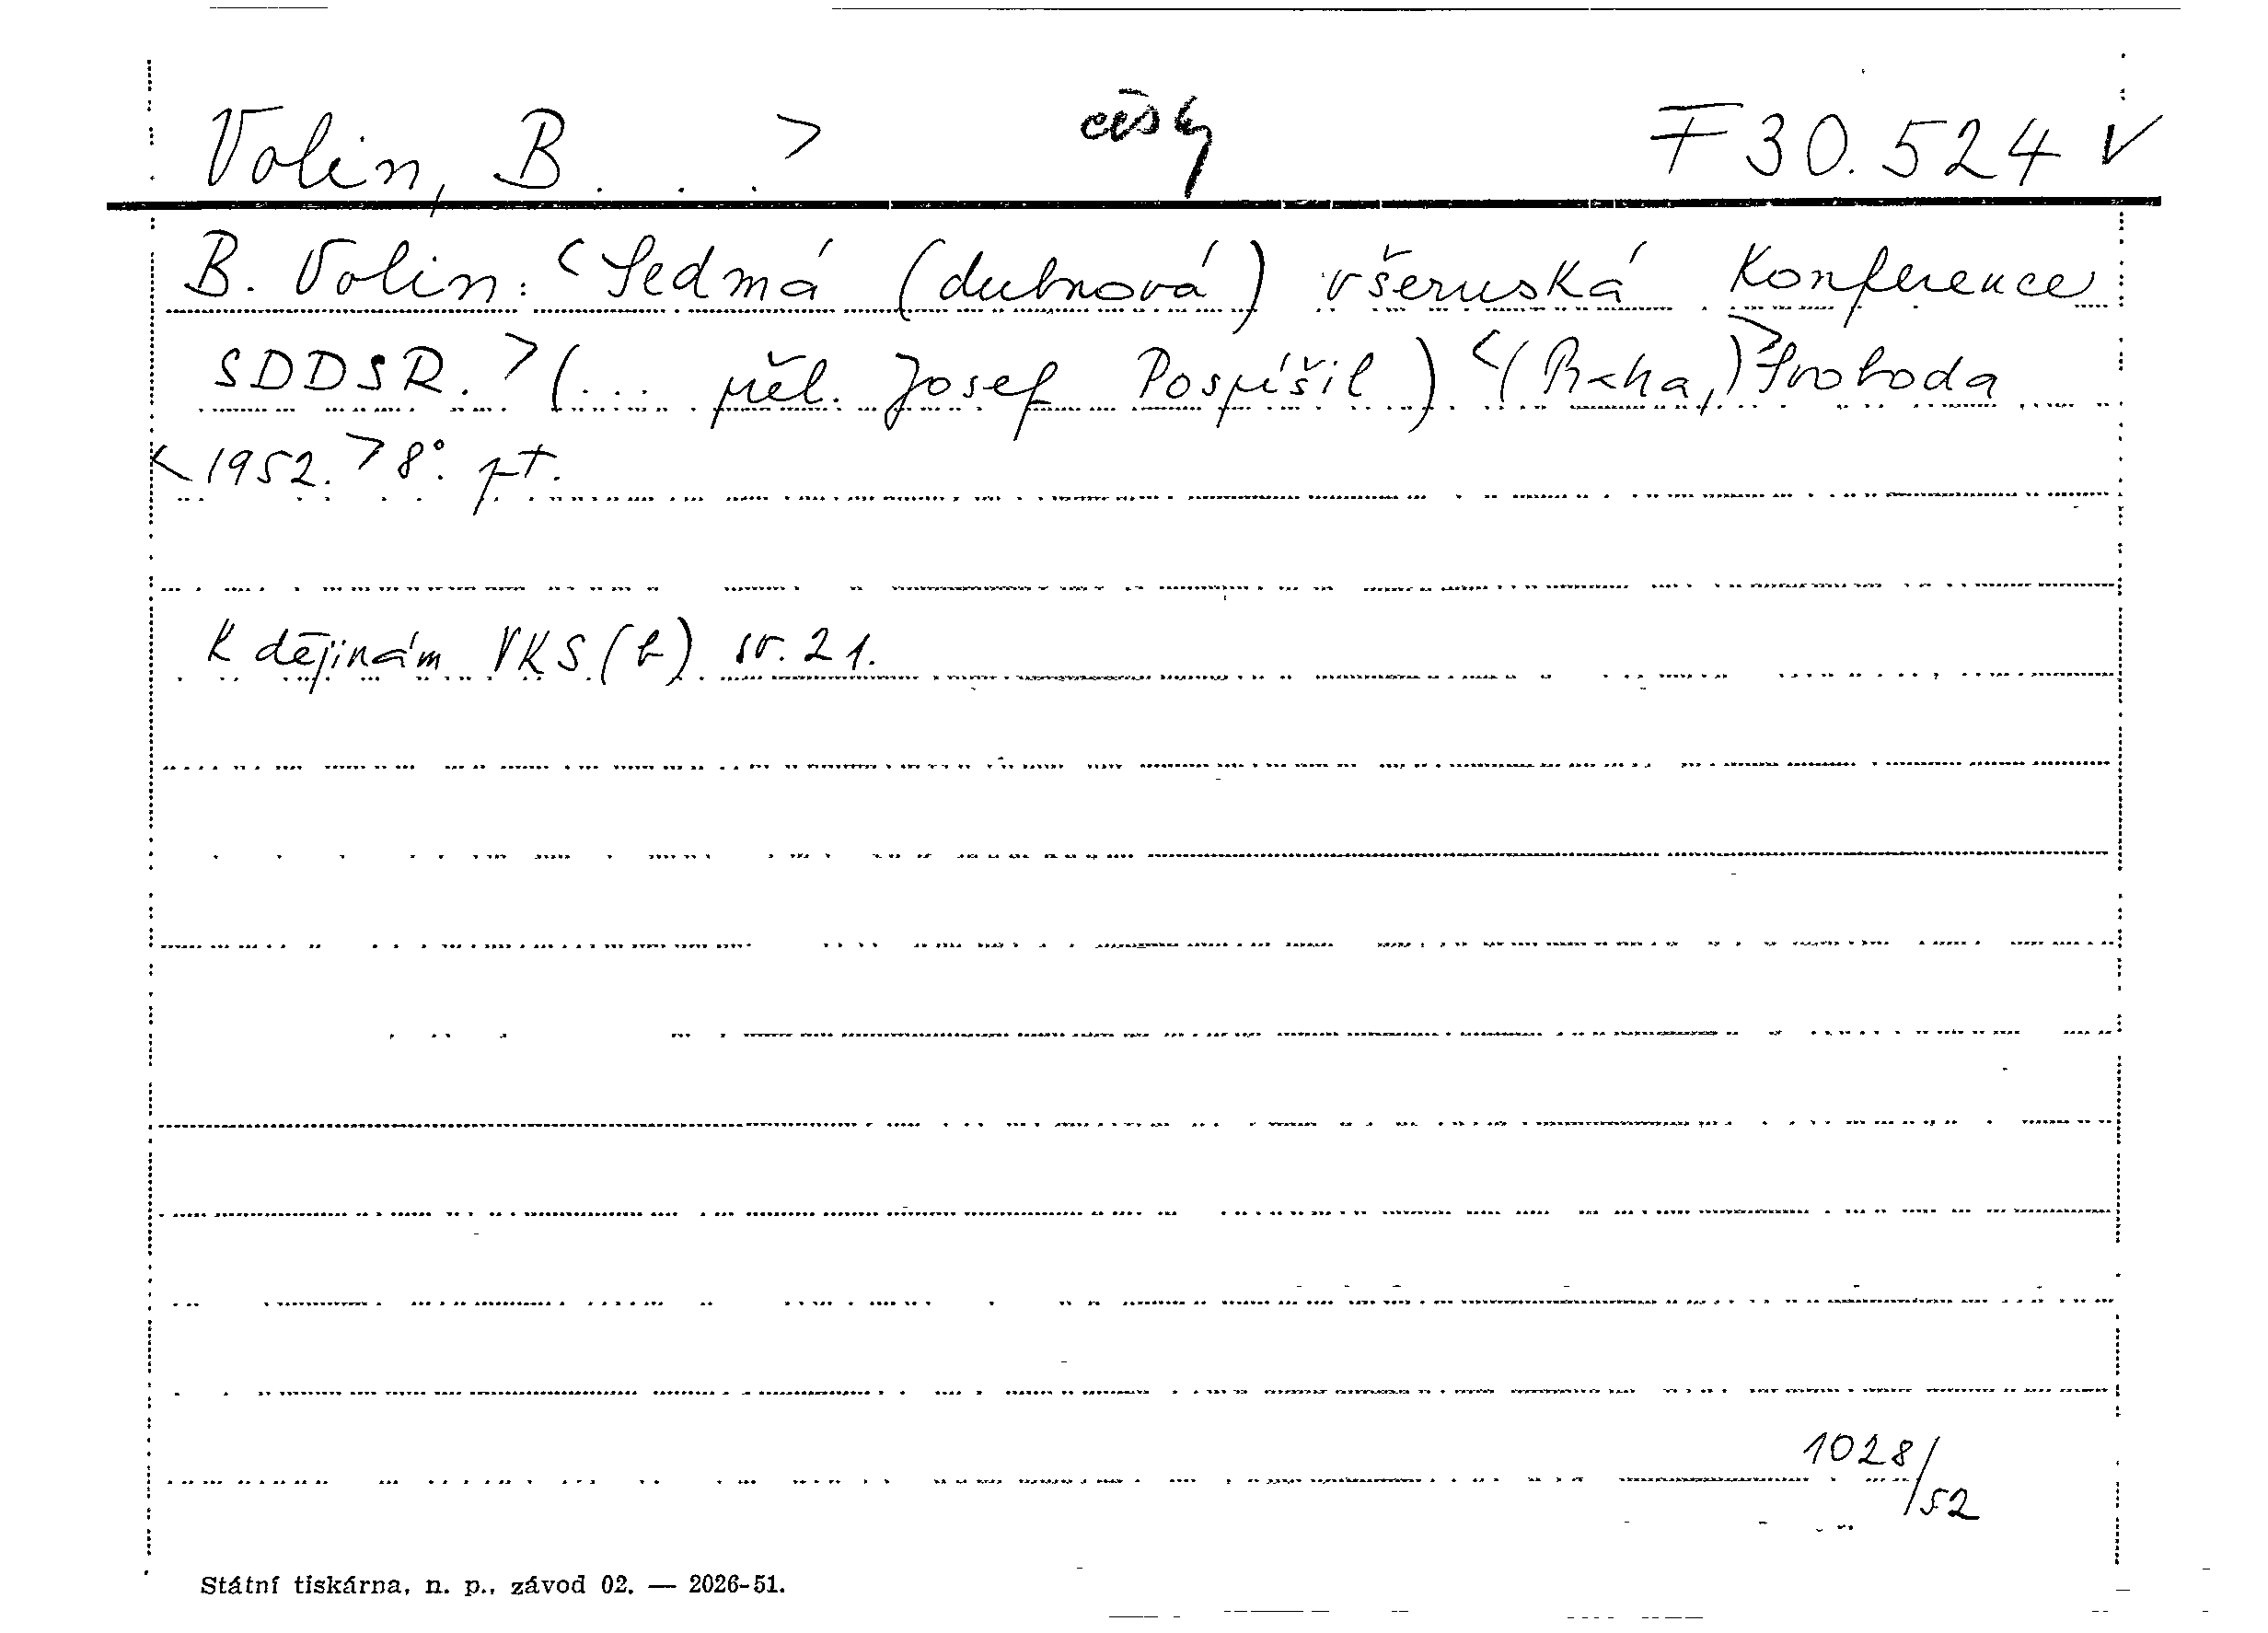 Volin, B. . . > česky F 30.524 V
B. Volin: <Sedmá (dubnová) všeruská konference
SDDSR.> (... přel. Josef Pospíšil) <(Praha,)> Svoboda
<1952.> 8°. pt.
K dějinám VKS(b) sv. 21.
1028/52
Státní tiskárna, n. p., závod 02. — 2026-51.